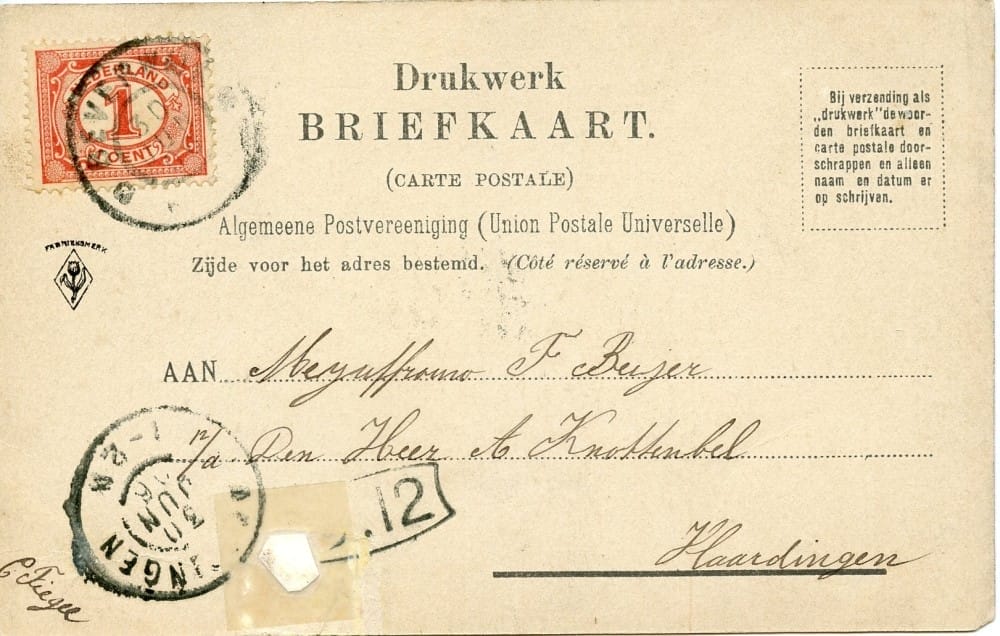 NEDERLAND
1
CENT
Drukwerk
BRIEFKAART.
(CARTE POSTALE)
Algemeene Postvereeniging (Union Postale Universelle)
Zijde voor het adres bestemd. (Côté réservé à l'adresse.)
Bij verzending als
„drukwerk" de woor-
den briefkaart en
carte postale door-
schrappen en alleen
naam en datum er
op schrijven.
FABRIEKSMERK
AAN Mejuffrouw F Beijer
p/a Den Heer A Knottenbel
Vlaardingen
1-2N
JUN
INGEN
.12
C Fiegee